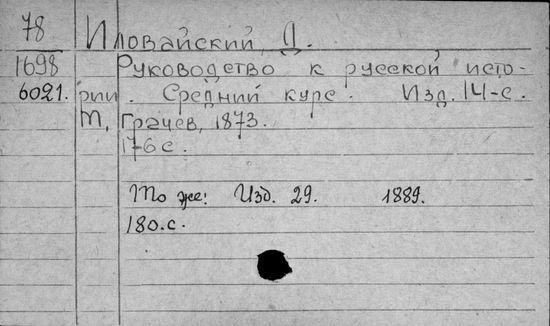 78 Иловайский, Д.
1698 Руководство к русской исто-
6021. рии. Средний курс. Изд. 14-е.
М, Грачев, 1873.
176 с.
То же: Изд. 29. 1889.
180.с.